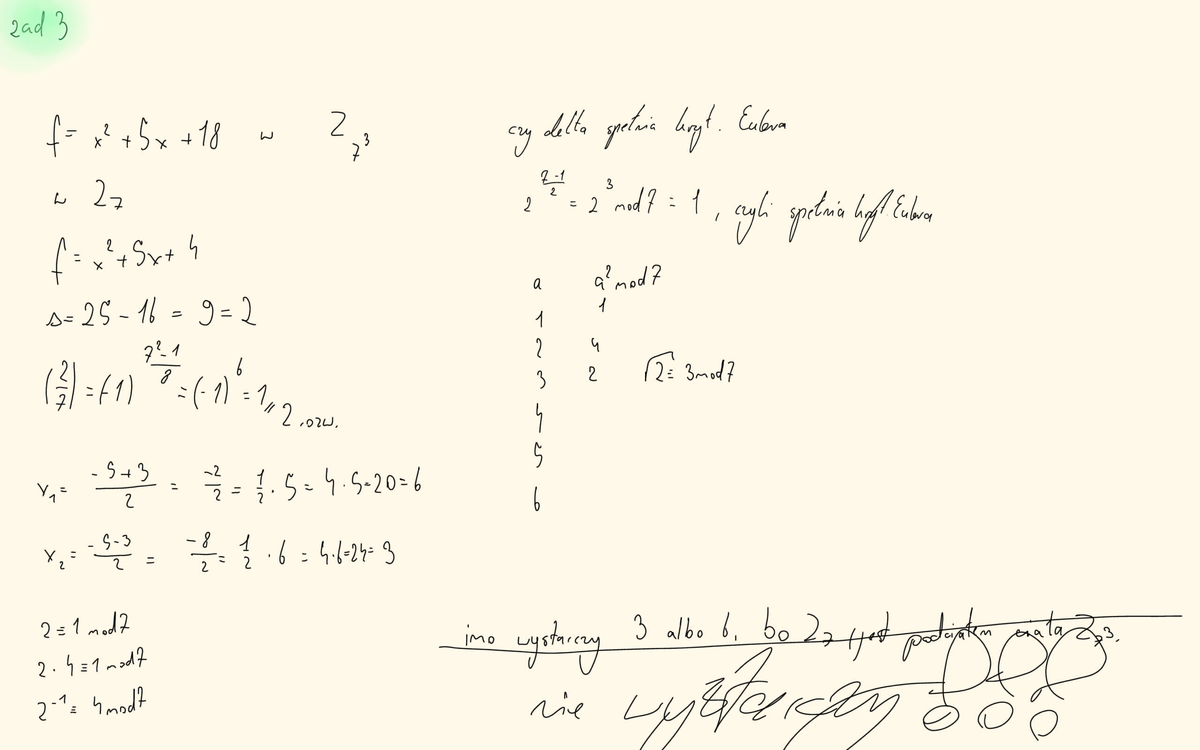 zad 3
f = x² + 5x + 18 w Z_7³
w Z_7
f = x² + 5x + 4
Δ = 25 - 16 = 9 = 2
(2/7) = (-1)^((7²-1)/8) = (-1)^6 = 1, 2 rozw.
x_1 = (-5+3)/2 = -2/2 = 1/2 · 5 = 4 · 5 = 20 = 6
x_2 = (-5-3)/2 = -8/2 = 1/2 · 6 = 4·6=24= 3
2 ≡ 1 mod 7
2 · 4 ≡ 1 mod 7
2^-1 ≡ 4 mod 7
czy delta spełnia kryt. Eulera
2^((7-1)/2) = 2^3 mod 7 = 1, czyli spełnia kryt. Eulera
a a² mod 7
1 1
2 4
3 2 √2 ≡ 3 mod 7
4
5
6
imo wystarczy 3 albo 6, bo Z_7 jest podciałem ciała Z_7³.
nie wystarczy !!!